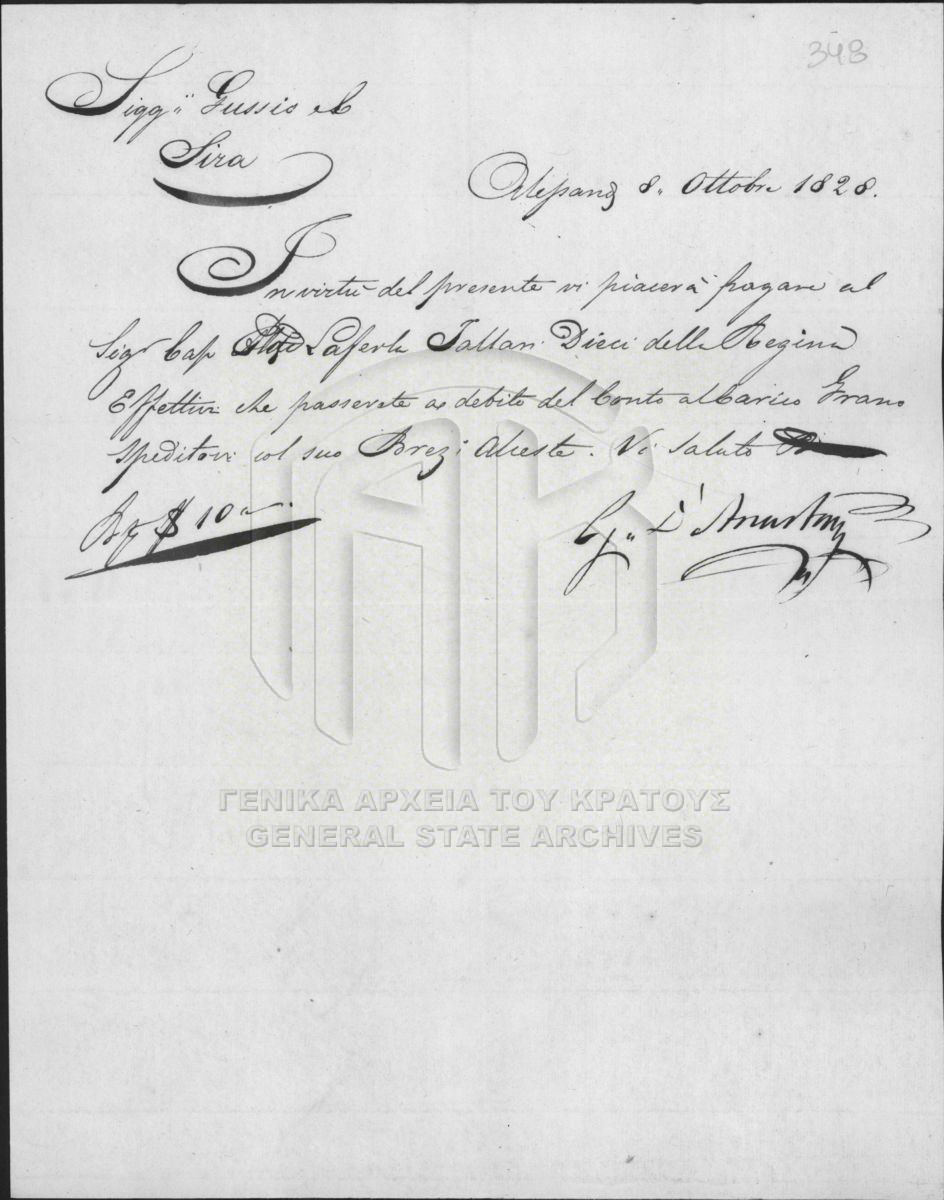 348
Sigg.ri Gussio e C
Sira
Alessand 8. Ottobre 1828.
In virtù del presente vi piacerà pagare al
Sig.r Cap Laferla Tallari Dieci della Regina
Effettivi che passerete a debito del Conto al Carico Grano
speditovi col suo Alceste. Vi saluto
$ 10
ΓΕΝΙΚΑ ΑΡΧΕΙΑ ΤΟΥ ΚΡΑΤΟΥΣ
GENERAL STATE ARCHIVES